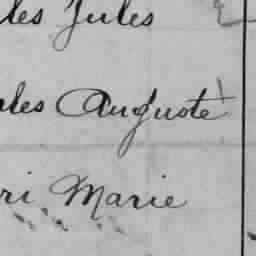 les Jules
les Auguste
ri Marie